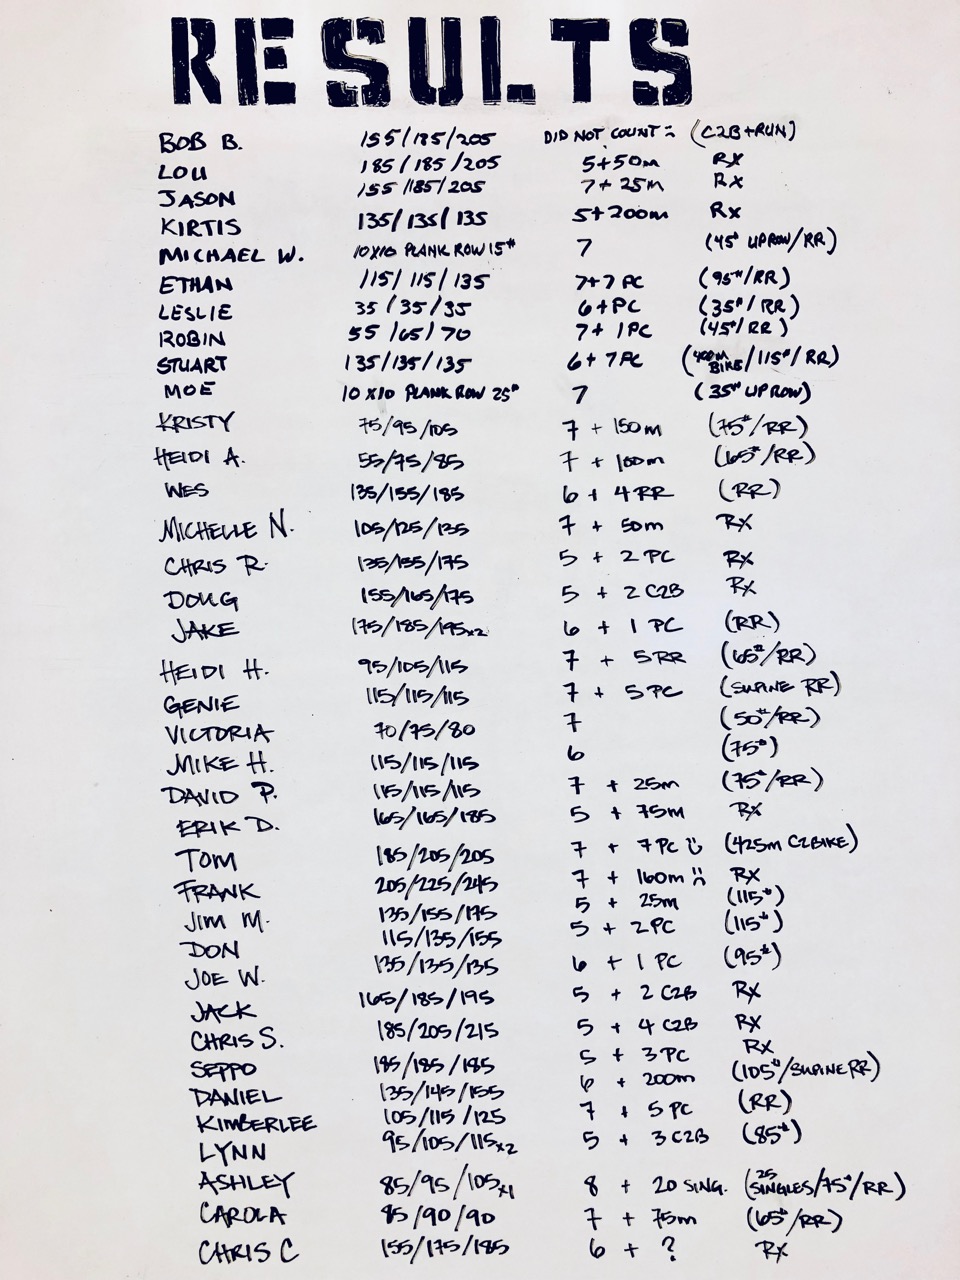 RESULTS
BOB B. 155/185/205 DID NOT COUNT :: (C2B+RUN)
LOU 185/185/205 5+50m RX
JASON 155/185/205 7+25m RX
KIRTIS 135/135/135 5+200m RX
MICHAEL W. 10X10 PLANK ROW 15# 7 (45# UPROW/RR)
ETHAN 115/115/135 7+7 PC (95#/RR)
LESLIE 35/35/35 6+PC (35#/RR)
ROBIN 55/65/70 7+1PC (45#/RR)
STUART 135/135/135 6+7PC (400M BIKE/115#/RR)
MOE 10X10 PLANK ROW 25# 7 (35# UPROW)
KRISTY 75/95/105 7 + 150m (75#/RR)
HEIDI A. 55/75/85 7 + 100m (65#/RR)
WES 135/155/185 6 + 4 RR (RR)
MICHELLE N. 105/125/135 7 + 50m RX
CHRIS R. 135/155/175 5 + 2 PC RX
DOUG 155/165/175 5 + 2 C2B RX
JAKE 175/185/195x2 6 + 1 PC (RR)
HEIDI H. 95/105/115 7 + 5 RR (65#/RR)
GENIE 115/115/115 7 + 5 PC (SUPINE RR)
VICTORIA 70/75/80 7 (50#/RR)
MIKE H. 115/115/115 6 (75#)
DAVID P. 115/115/115 7 + 25m (75#/RR)
ERIK D. 165/165/185 5 + 75m RX
TOM 185/205/205 7 + 7 PC (425m C2BIKE)
FRANK 205/225/245 7 + 160m RX
JIM M. 135/155/175 5 + 25m (115#)
DON 115/135/155 5 + 2PC (115#)
JOE W. 135/135/135 6 + 1 PC (95#)
JACK 165/185/195 5 + 2 C2B RX
CHRIS S. 185/205/215 5 + 4 C2B RX
SEPPO 185/185/185 5 + 3 PC RX
DANIEL 135/145/155 6 + 200m (105#/SUPINE RR)
KIMBERLEE 105/115/125 7 + 5 PC (RR)
LYNN 95/105/115x2 5 + 3 C2B (85#)
ASHLEY 85/95/105x1 8 + 20 SING. (25 SINGLES/75#/RR)
CAROLA 85/90/90 7 + 75m (65#/RR)
CHRIS C 155/175/185 6 + ? RX